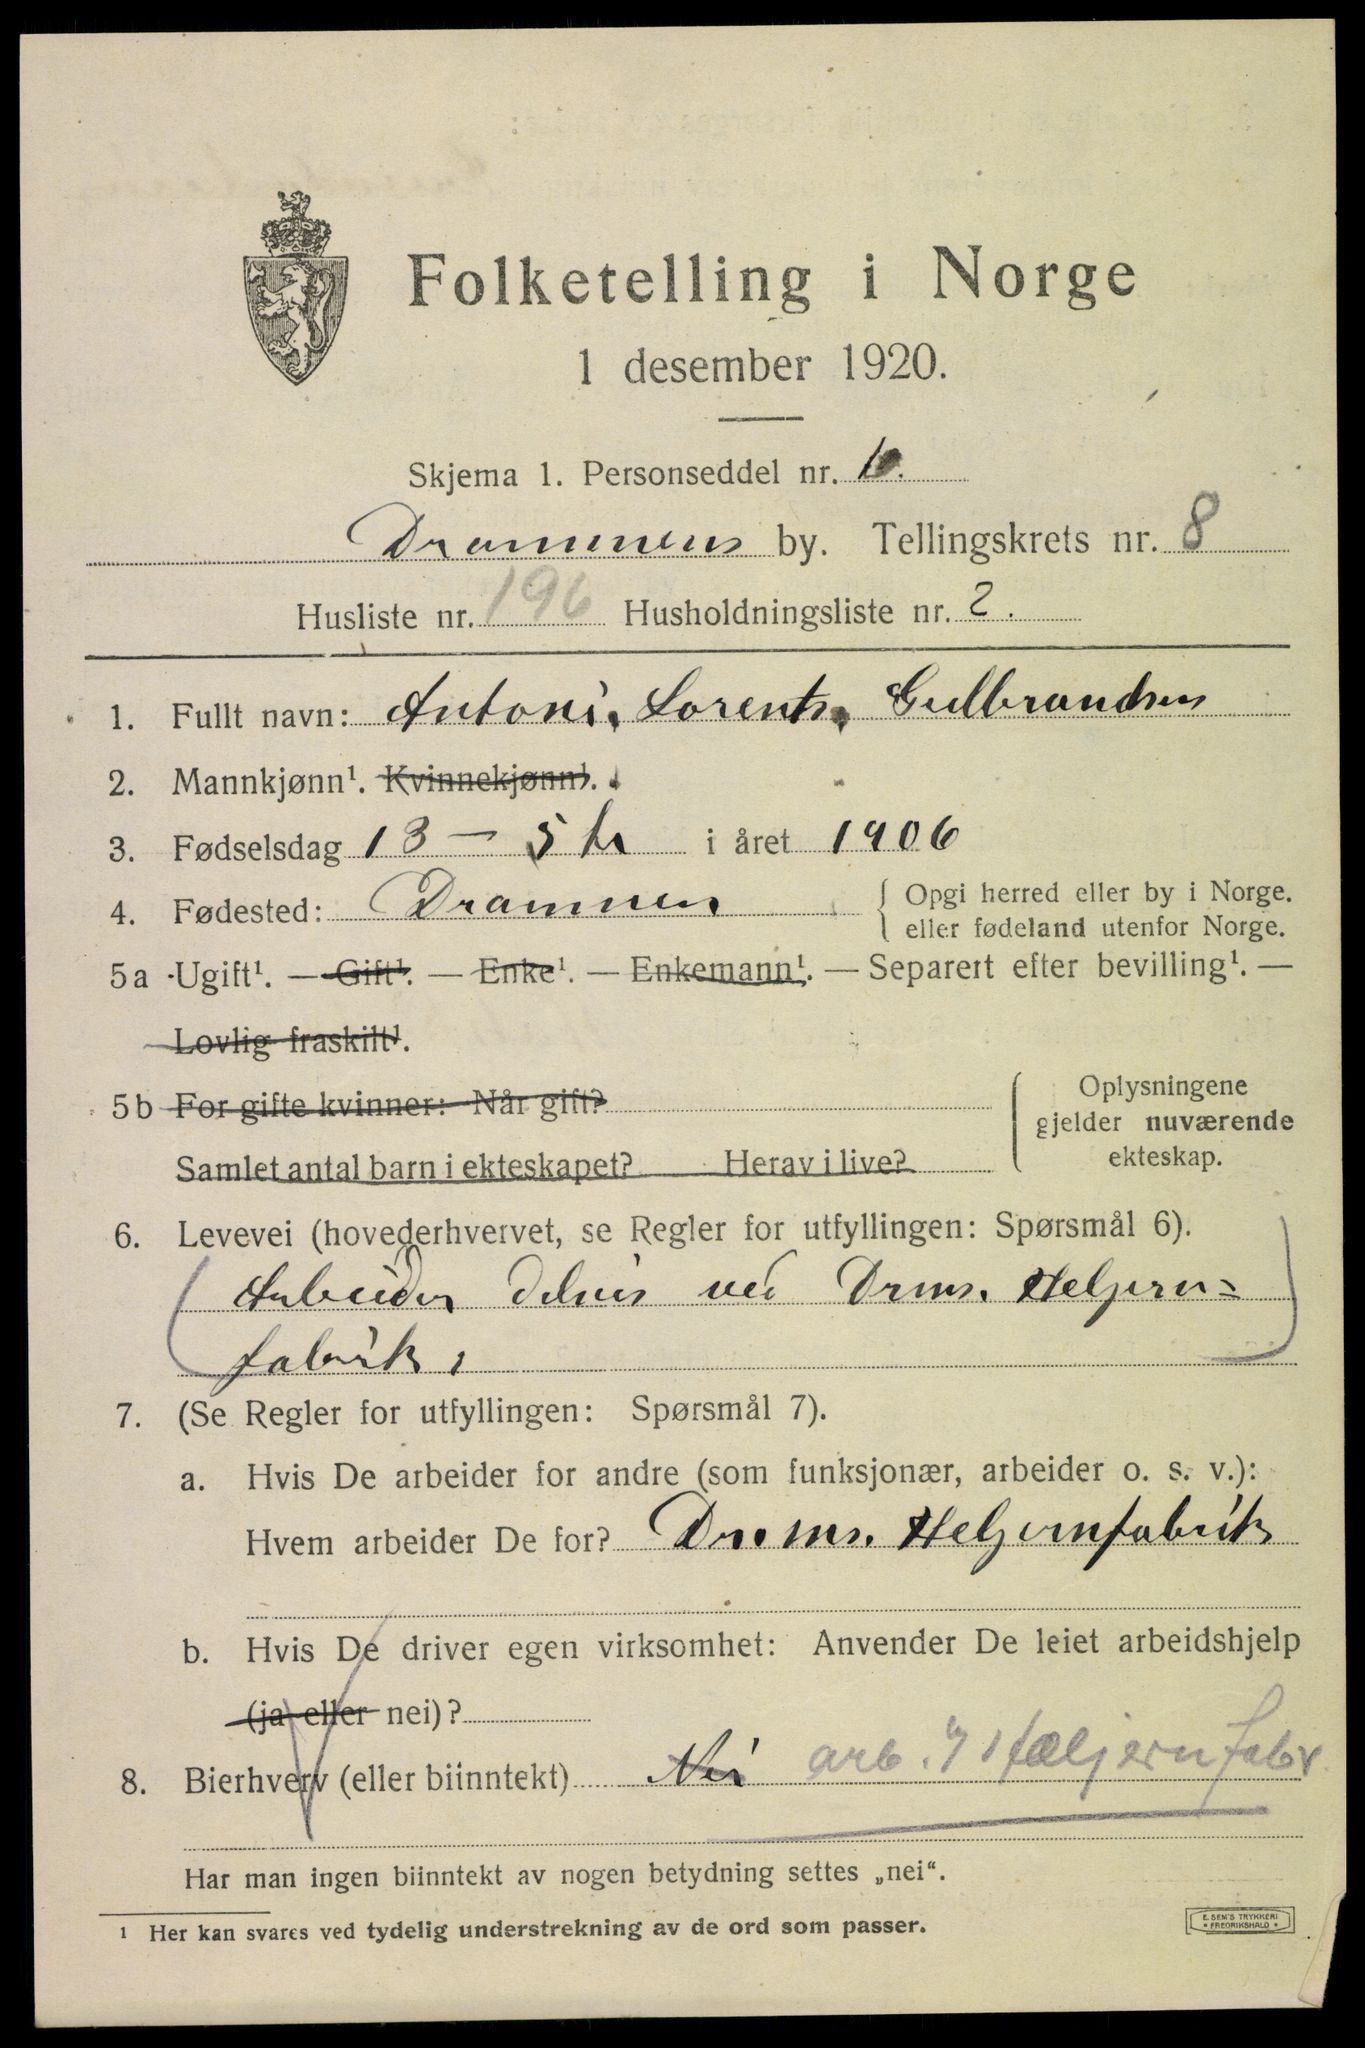 Folketelling i Norge
1 desember 1920.
Skjema 1. Personseddel nr.
Drammens by. Tellingskrets nr. 8
Husliste nr. 196 Husholdningsliste nr. 2.
1. Fullt navn: Antoni. Lorents. Gulbrandsen
2. Mannkjønn¹. Kvinnekjønn¹.
3. Fødselsdag 13 – 5 te i året 1906
4. Fødested: Drammen { Opgi herred eller by i Norge.
eller fødeland utenfor Norge.
5a Ugift¹. — Gift¹. — Enke¹. — Enkemann¹. — Separert efter bevilling¹. —
Lovlig fraskilt¹.
5b For gifte kvinner: Når gift?
Samlet antal barn i ekteskapet? Herav i live?
Oplysningene
gjelder nuværende
ekteskap.
6. Levevei (hovederhvervet, se Regler for utfyllingen: Spørsmål 6).
Arbeider delvis ved Drms. Heljern=
fabrik,
7. (Se Regler for utfyllingen: Spørsmål 7).
a. Hvis De arbeider for andre (som funksjonær, arbeider o. s. v.):
Hvem arbeider De for? Drms. Heljernfabrik
b. Hvis De driver egen virksomhet: Anvender De leiet arbeidshjelp
(ja eller nei)?
8. Bierhverv (eller biinntekt) Nei arb. hæljernfabr.
Har man ingen biinntekt av nogen betydning settes „nei“.
1 Her kan svares ved tydelig understrekning av de ord som passer.
E. SEM'S TRYKKERI
* FREDRIKSHALD *